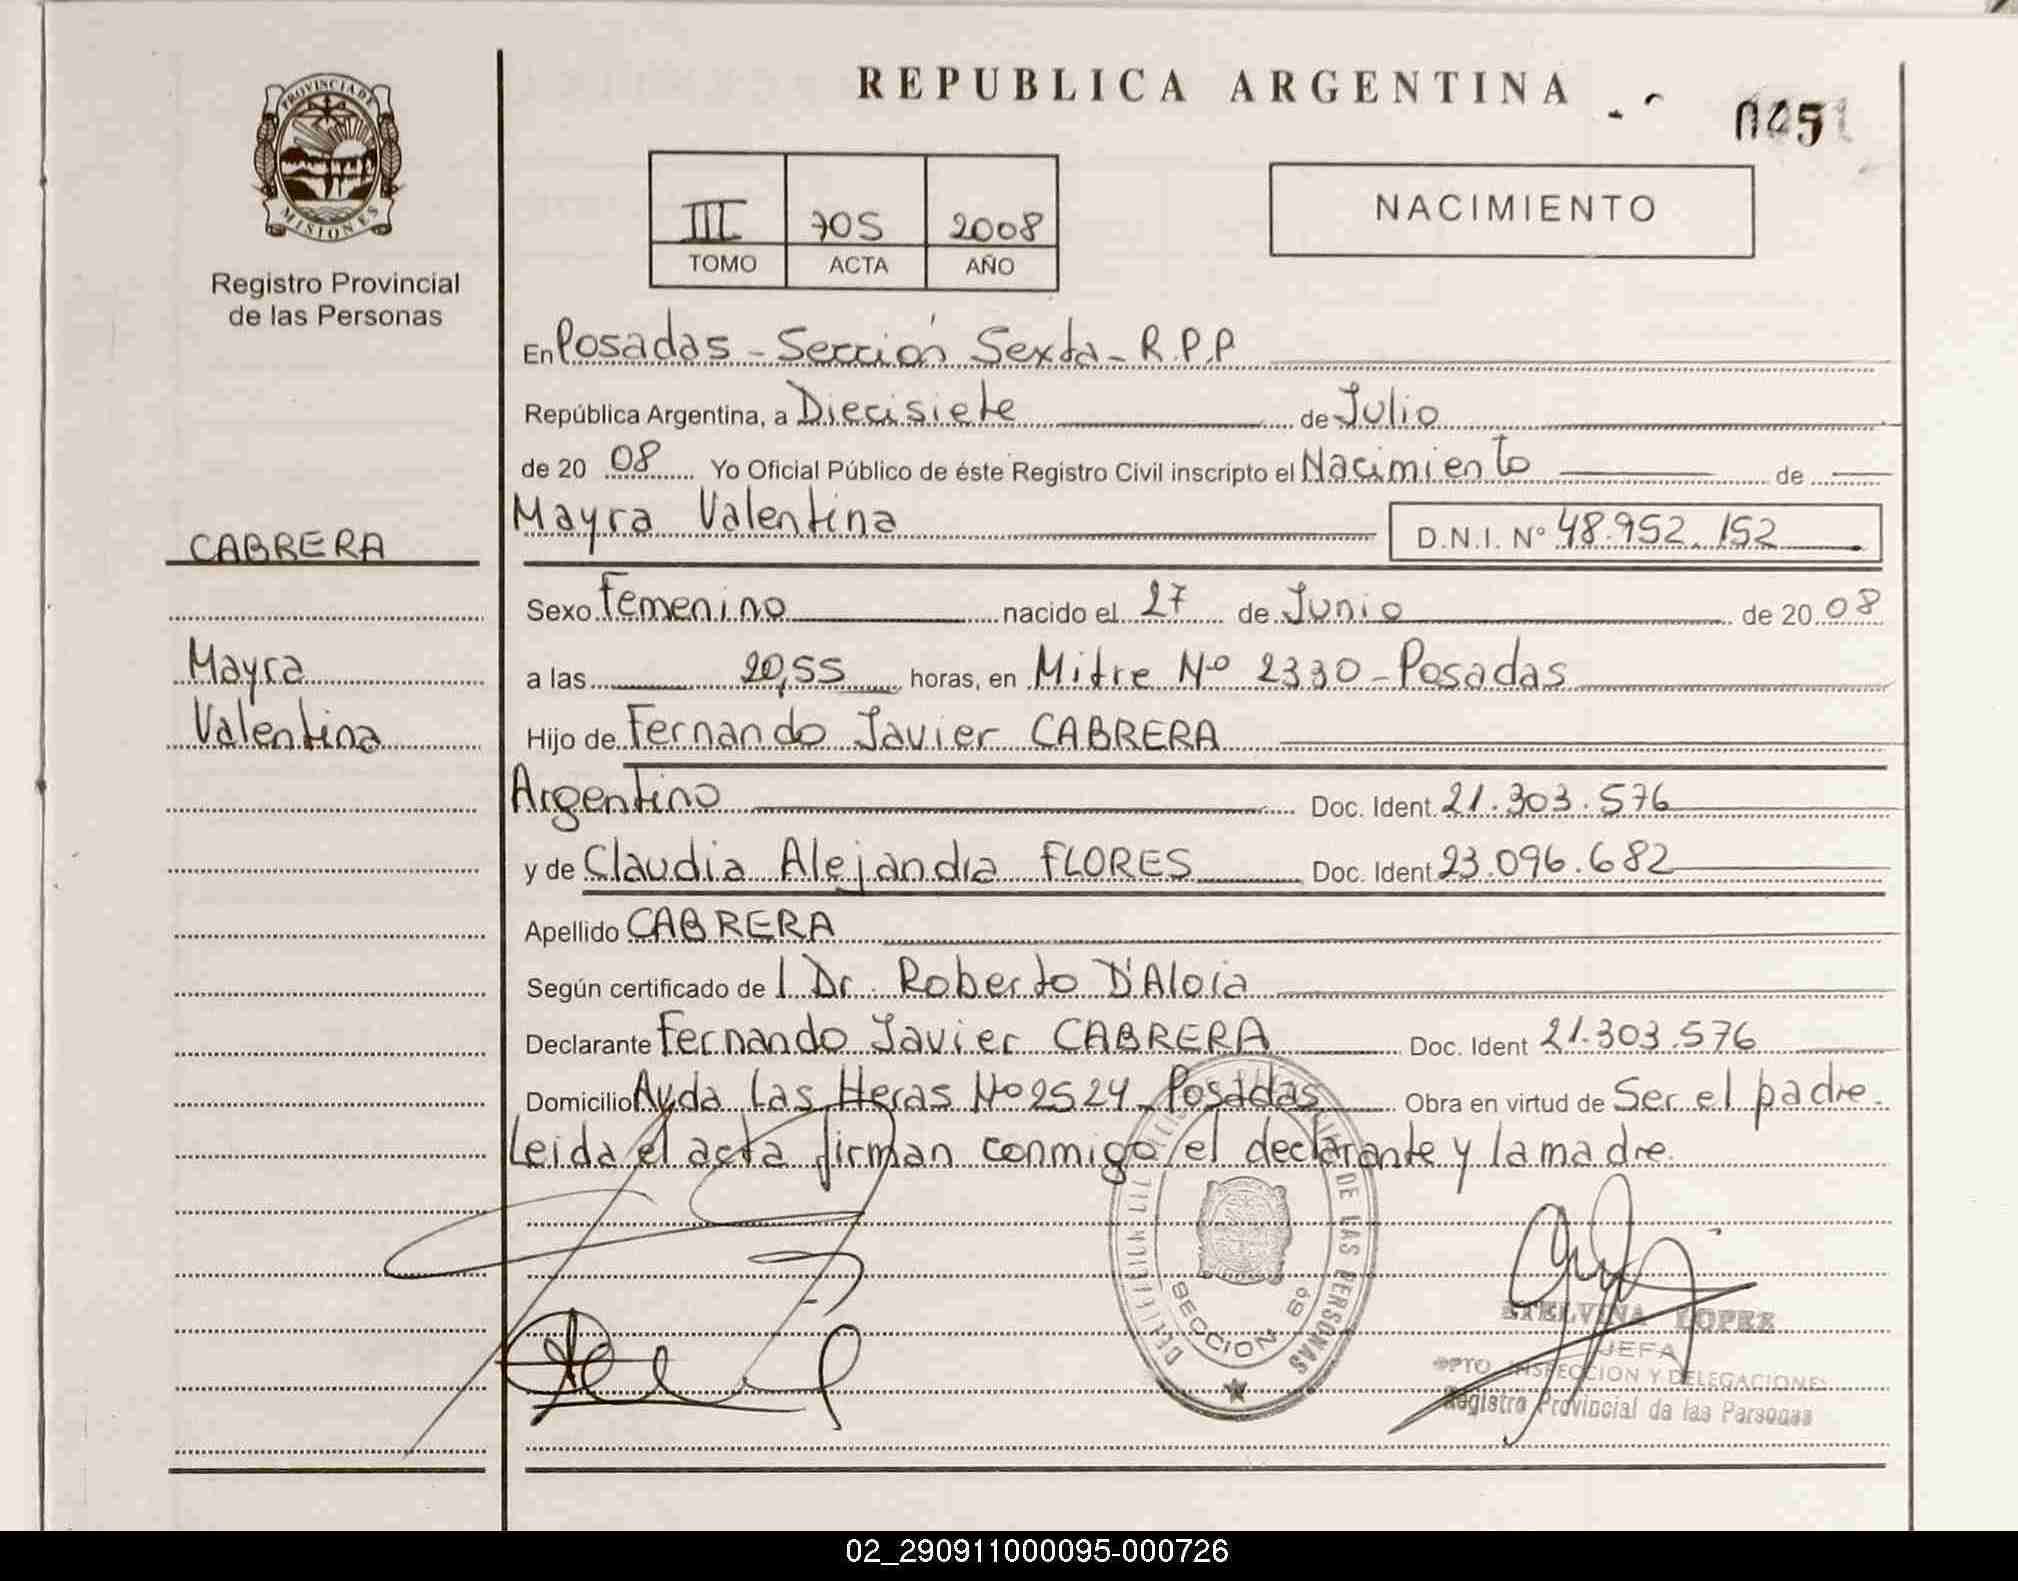 REPUBLICA ARGENTINA
PROVINCIA DE
MISIONES
Registro Provincial
de las Personas
III 705 2008
TOMO ACTA AÑO
NACIMIENTO
En Posadas - Sección Sexta - R.P.P
República Argentina, a Diecisiete de Julio
de 20 08 Yo Oficial Público de éste Registro Civil inscripto el Nacimiento de
Mayra Valentina D.N.I. Nº 48.952.152
CABRERA
Sexo Femenino nacido el 27 de Junio de 20 08
Mayra
a las 20,55 horas, en Mitre Nº 2330 - Posadas
Valentina
Hijo de Fernando Javier CABRERA
Argentino Doc. Ident. 21.303.576
y de Claudia Alejandra FLORES Doc. Ident. 23.096.682
Apellido CABRERA
Según certificado de l Dr. Roberto D'Aloia
Declarante Fernando Javier CABRERA Doc. Ident 21.303.576
Domicilio Avda Las Heras Nº 2524 - Posadas Obra en virtud de Ser el padre.
Leida el acta firman conmigo el declarante y la madre.
DE LAS PERSONAS
SECCION 6º
ETELVINA LOPEZ
JEFA
DPTO INSPECCION Y DELEGACIONES
Registro Provincial de las Personas
02_290911000095-000726